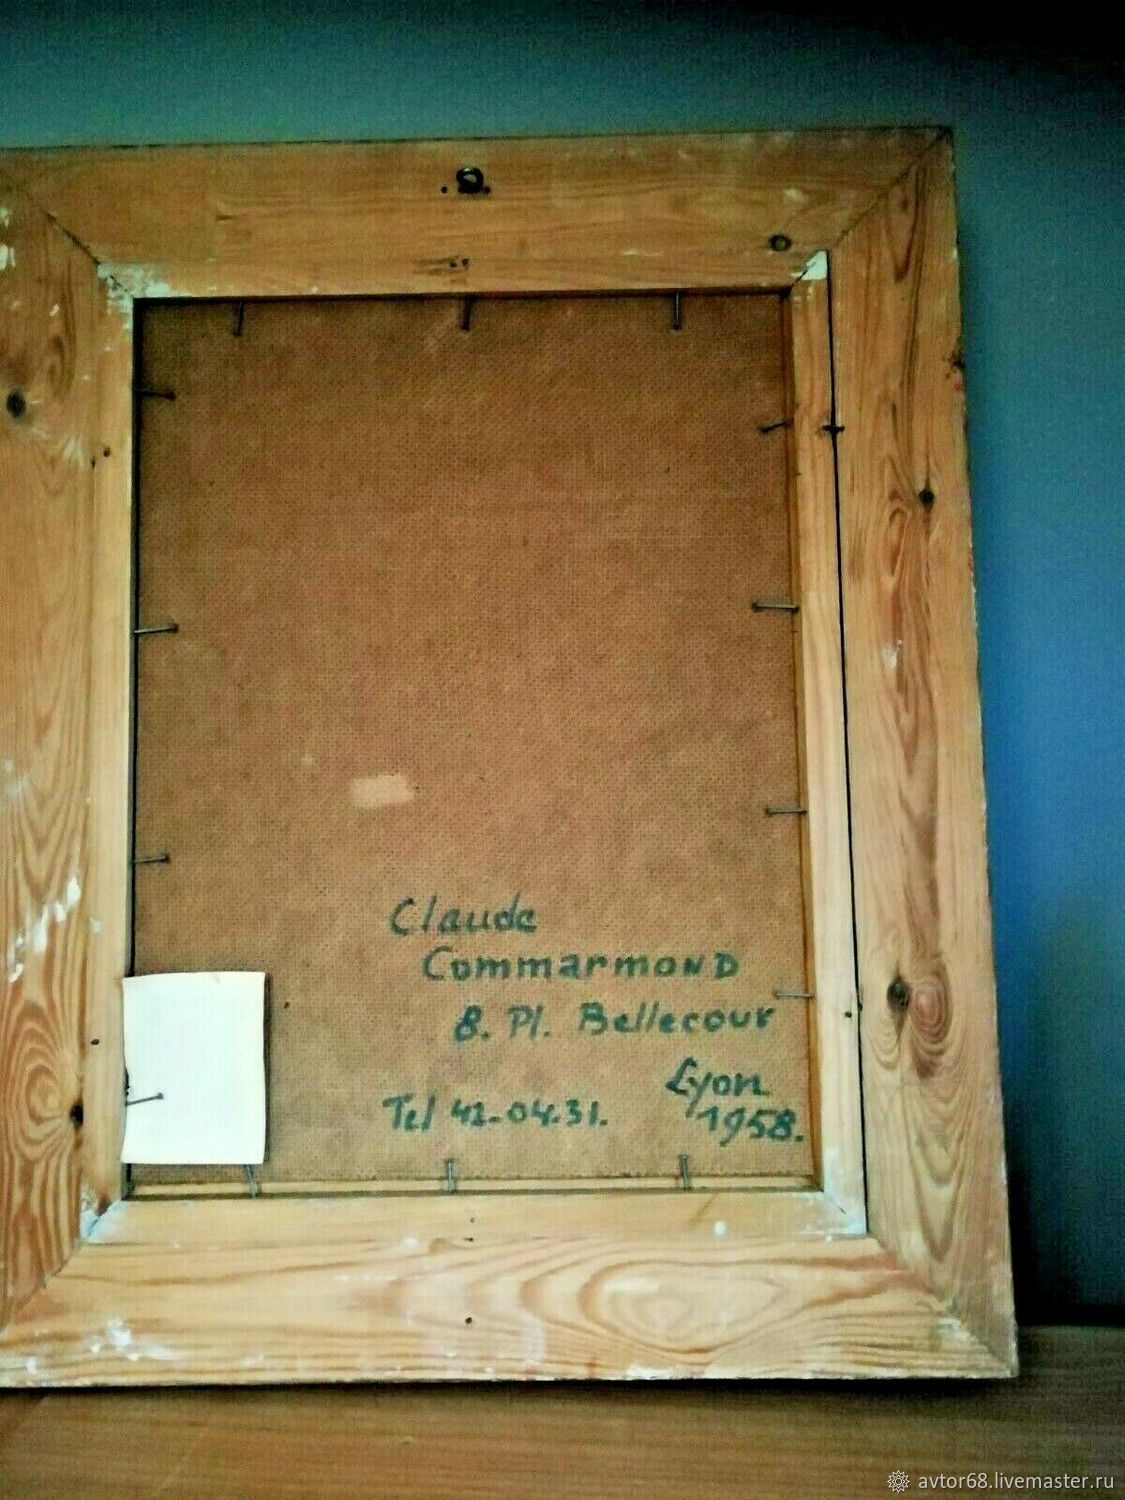 Claude
CommarmonD
8. Pl. Bellecour
Lyon
Tel 42-04.31. 1958.
avtor68.livemaster.ru